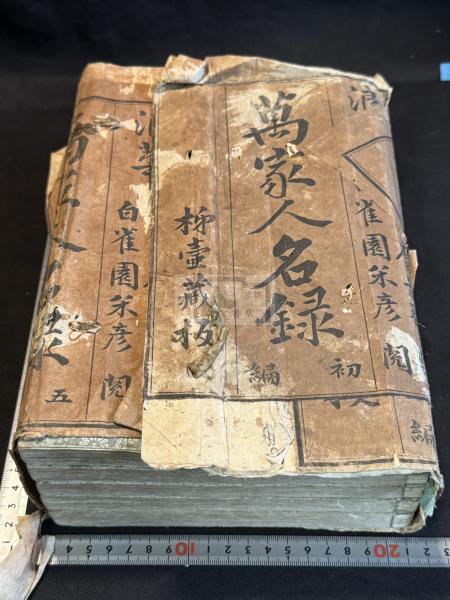 浪
雀園米彦 閲
編
萬家人名録
初編
柳壷藏板
浪華
白雀園米彦 閲
五
4 5 6 7 8 9 10 1 2 3 4 5 6 7 8 9 20 1 2 3